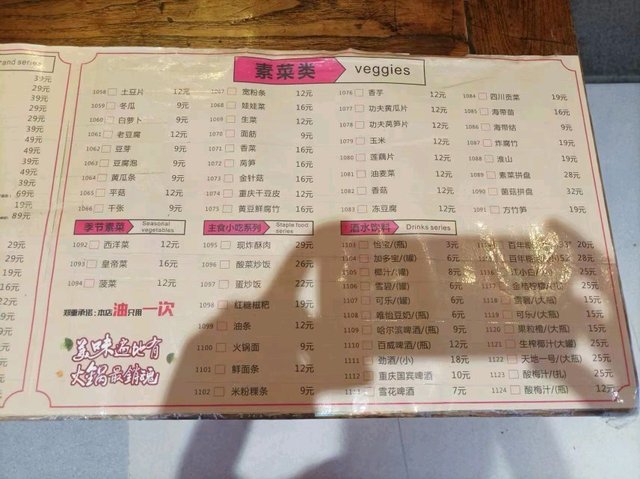 rand series
39元
29元
29元
39元
39元
49元
39元
49元
69元
19元
89元
29元
素菜类 veggies
1058 土豆片 12元
1059 冬瓜 9元
1060 白萝卜 9元
1061 老豆腐 12元
1062 豆芽 9元
1063 豆腐泡 9元
1064 黄瓜条 9元
1065 平菇 12元
1066 干张 9元
1067 宽粉条 12元
1068 娃娃菜 16元
1069 生菜 12元
1070 面筋 9元
1071 香菜 16元
1072 莴笋 16元
1073 金针菇 16元
1074 重庆干豆皮 12元
1075 黄豆鲜腐竹 16元
1076 香芋 12元
1077 功夫黄瓜片 12元
1078 功夫莴笋片 12元
1079 玉米 12元
1080 莲藕片 12元
1081 油麦菜 12元
1082 香菇 12元
1083 冻豆腐 12元
1084 四川贡菜 19元
1085 海带苗 16元
1086 海带结 9元
1087 炸腐竹 19元
1088 淮山 19元
1089 素菜拼盘 28元
1090 菌菇拼盘 32元
1091 方竹笋 19元
季节素菜 Seasonal vegetables
1092 西洋菜 12元
1093 皇帝菜 16元
1094 菠菜 12元
郑重承诺:本店油只用一次
美味无比有
火锅最销魂
主食小吃系列 Staple food series
1095 现炸酥肉 29元
1096 酸菜炒饭 26元
1097 蛋炒饭 22元
1098 红糖糍粑 19元
1099 油条 12元
1100 火锅面 9元
1101 鲜面条 12元
1102 米粉粿条 9元
酒水饮料 Drinks series
1103 怡宝/(瓶) 3元
1104 加多宝/(罐) 6元
1105 椰汁/(罐) 8元
1106 雪碧/(罐) 6元
1107 可乐/(罐) 6元
1108 唯怡豆奶/(瓶) 6元
1109 哈尔滨啤酒/(瓶) 9元
1110 百威啤酒/(瓶) 12元
1111 劲酒/(小) 18元
1112 重庆国宾啤酒 10元
111 雪花啤酒 7元
20元
28元
25元
25元
1118 雪碧/(大瓶) 15元
1119 可乐/(大瓶) 15元
1120 果粒橙/(大瓶) 19元
1121 生榨椰汁/(大罐) 25元
1122 天地一号/(大瓶) 25元
1123 酸梅汁/(扎) 25元
1124 酸梅汁/(大瓶) 12元